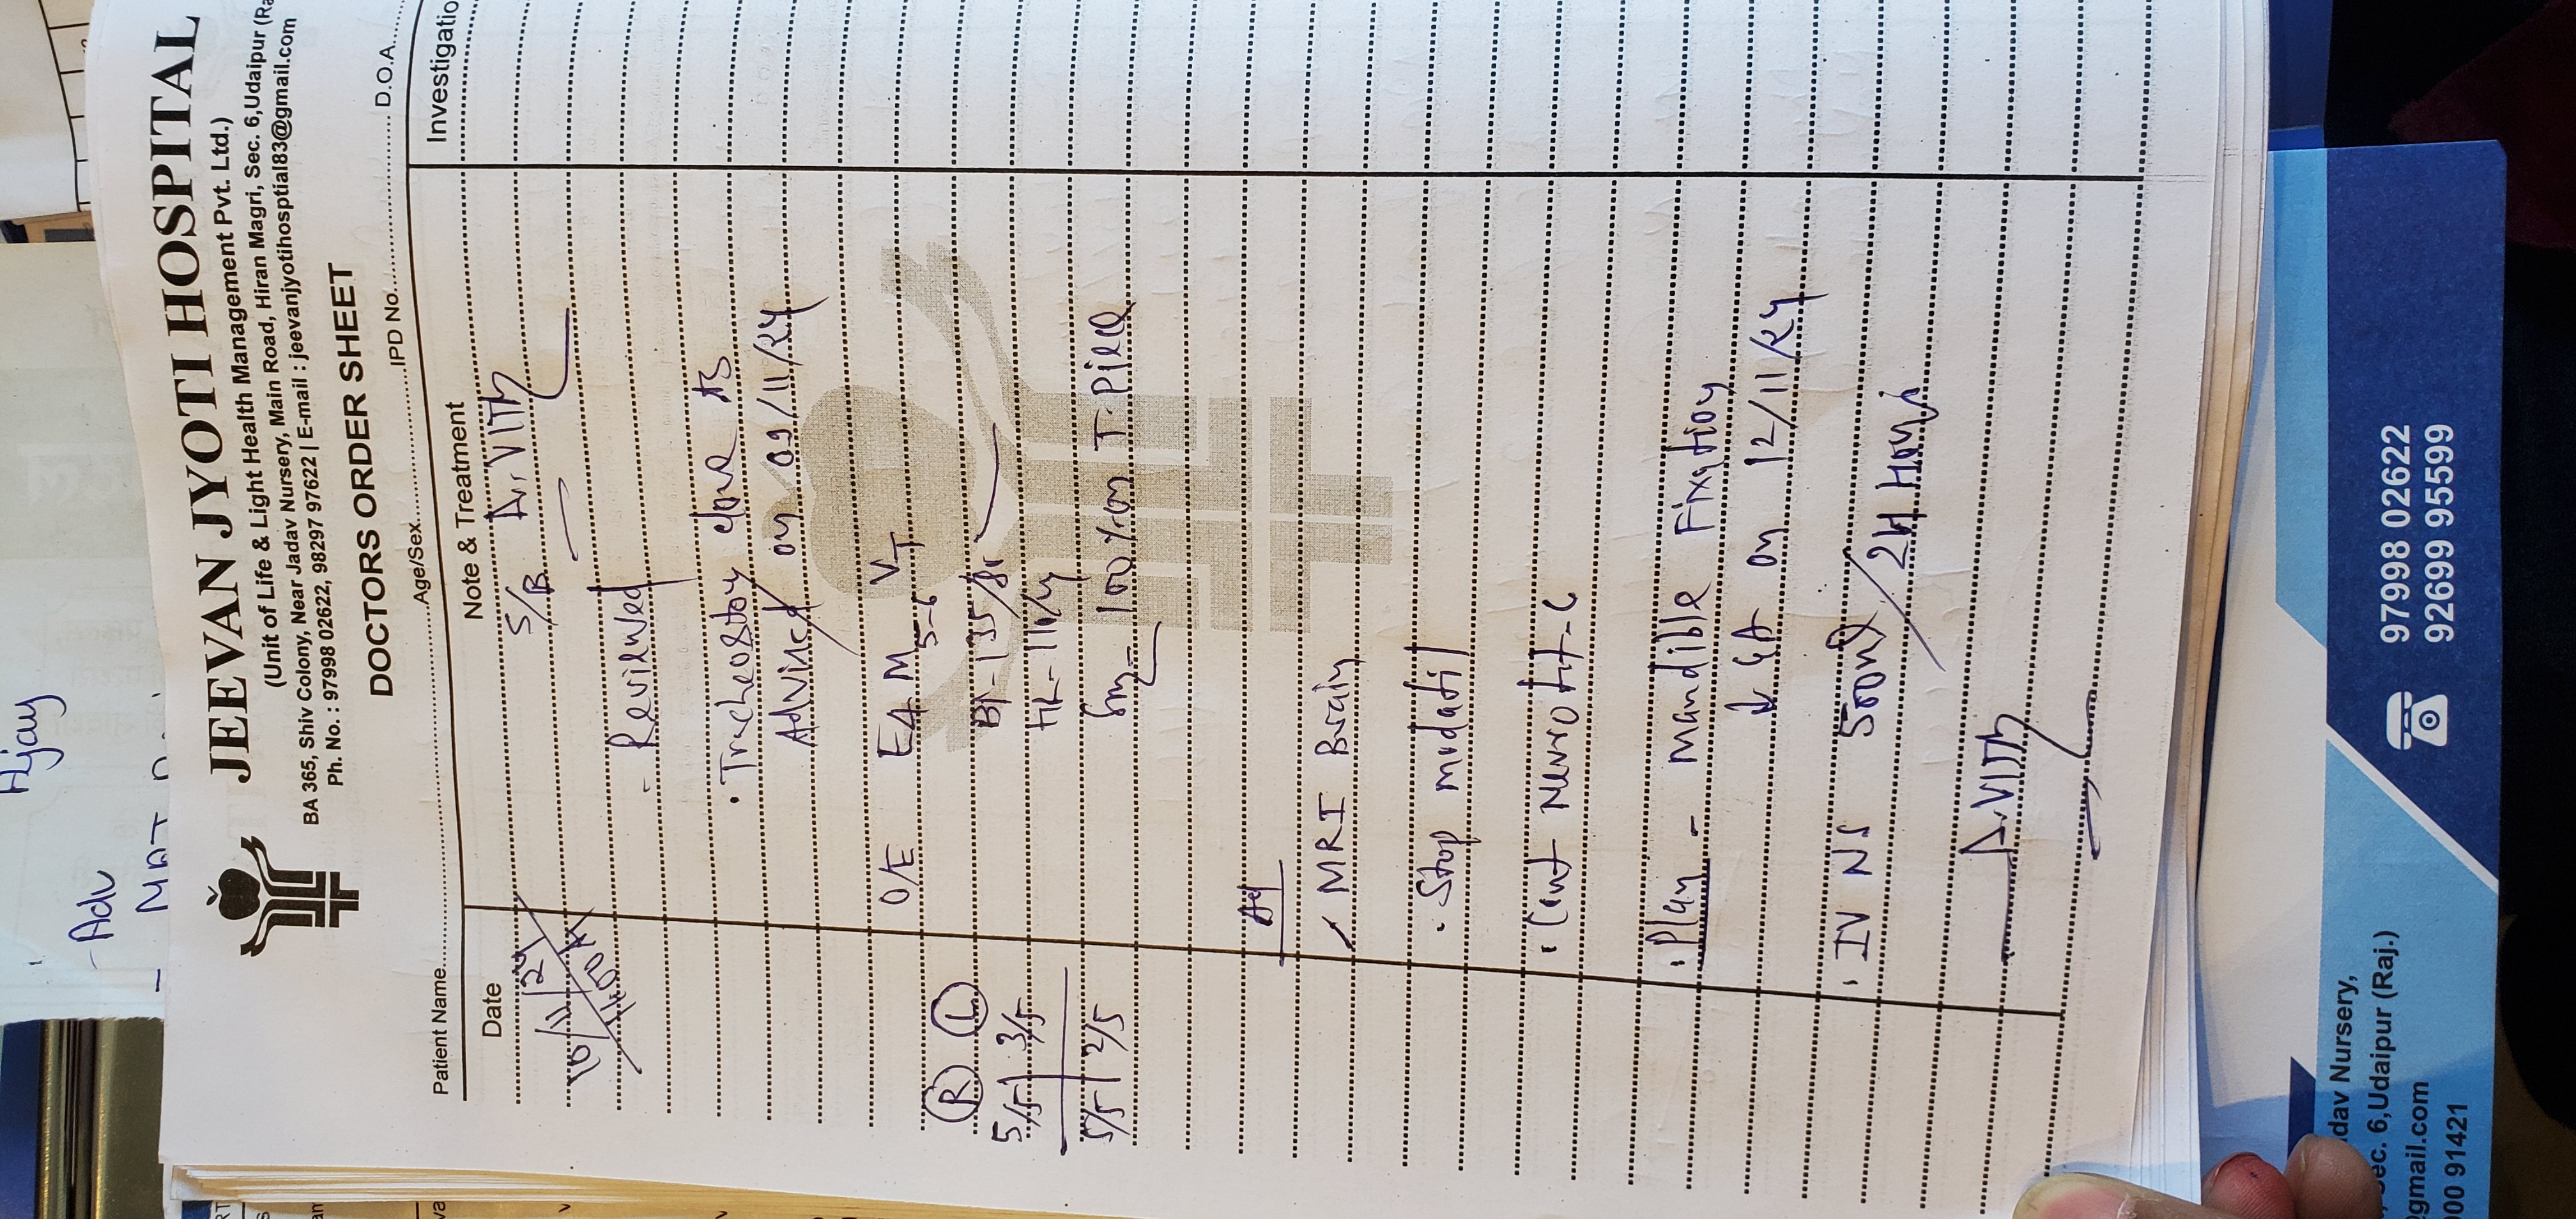 Ajay
- Adv
JEEVAN JYOTI HOSPITAL
(Unit of Life & Light Health Management Pvt. Ltd.)
BA 365, Shiv Colony, Near Jadav Nursery, Main Road, Hiran Magri, Sec. 6,Udaipur (Ra
Ph. No. : 97998 02622, 98297 97622 | E-mail : jeevanjyotihosptial83@gmail.com
DOCTORS ORDER SHEET
Patient Name........Age/Sex........IPD No........D.O.A........
Date Note & Treatment Investigatio
10/11/24 S/B Dr. VITM
- Reviewed
• Tracheostoy done as
Adviced on 09/11/24
O/E E4 M5-6 VT
(R) (L)
5/5 | 3/5 BP - 135/81
5/5 | 2/5
100% on T. Piece
✓ MRI Brain
• Stop midatil
• Cont Neurotit-C
• Plan - Mandible Fixation
↓ GA on 12/11/24
• IV NS 500ml / 24 Hours
Dr. VITM
97998 02622
92699 95599
dav Nursery,
, Sec. 6,Udaipur (Raj.)
@gmail.com
000 91421